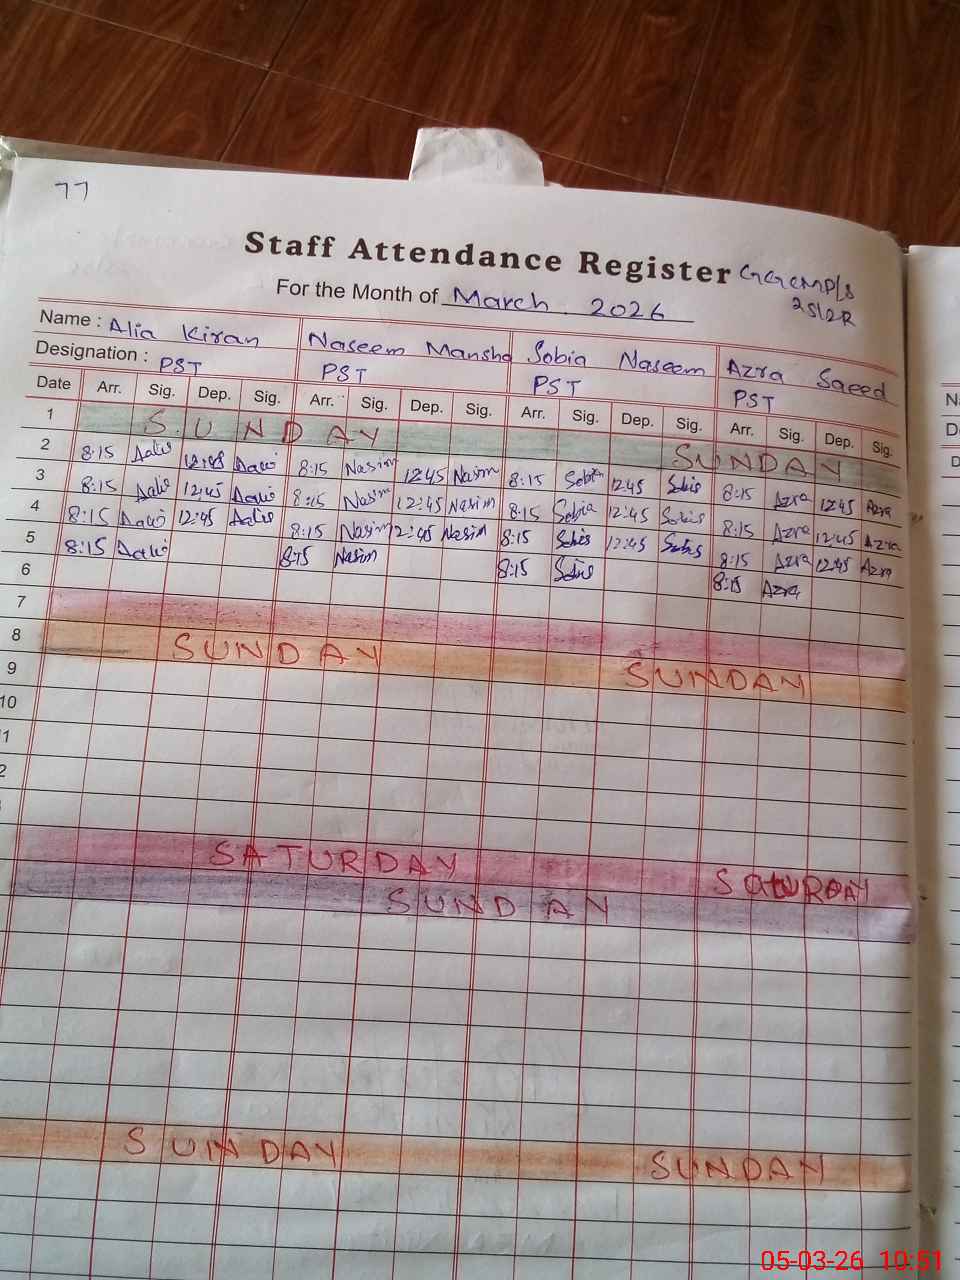 77
Staff Attendance Register GGCMP/S
For the Month of March 2026 25/2R
Name : Alia Kiran Naseem Mansha Sobia Naseem Azra Saeed
Designation : PST PST PST PST
Date Arr. Sig. Dep. Sig. Arr. Sig. Dep. Sig. Arr. Sig. Dep. Sig. Arr. Sig. Dep. Sig.
1 SUNDAY SUNDAY
2 8:15 12:45 8:15 Nasim 12:45 Nasim 8:15 Sobia 12:45 Sobia 8:15 Azra 12:45 Azra
3 8:15 12:45 8:15 Nasim 12:45 Nasim 8:15 Sobia 12:45 Sobia 8:15 Azra 12:45 Azra
4 8:15 12:45 8:15 Nasim 12:45 Nasim 8:15 Sobia 12:45 Sobia 8:15 Azra 12:45 Azra
5 8:15 8:15 Nasim 8:15 Sobia 8:15 Azra
6
7
8 SUNDAY SUNDAY
9
10
1
2
SATURDAY SATURDAY
SUNDAY
SUNDAY SUNDAY
05-03-26 10:51